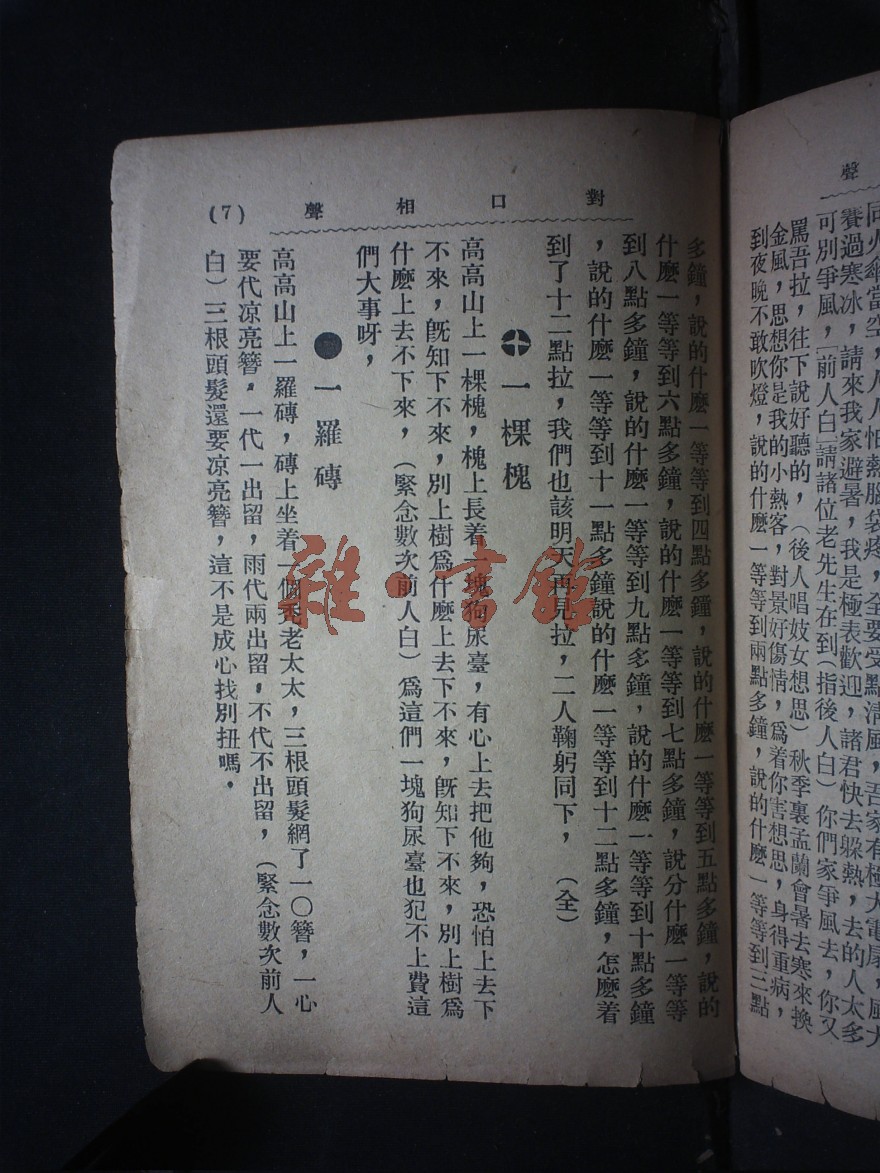 聲
同火傘當空，人人怕熱腦袋疼，全要受點清風，吾家有極大電扇，風大
賽過寒冰，請來我家避暑，我是極表歡迎，諸君快去躲熱，去的人太多
可別爭風，［前人白］請諸位老先生在到（指後人白）你們家爭風去，你又
罵吾拉，往下說好聽的，（後人唱妓女想思）秋季裏孟蘭會暑去寒來換
金風，思想你是我的小熱客，對景好傷情，爲着你害想思，身得重病，
到夜晚不敢吹燈，說的什麼一等等到兩點多鐘，說的什麼一等等到三點
對口相聲
(7)
多鐘，說的什麼一等等到四點多鐘，說的什麼一等等到五點多鐘，說的
什麼一等等到六點多鐘，說的什麼一等等到七點多鐘，說分什麼一等等
到八點多鐘，說的什麼一等等到九點多鐘，說的什麼一等等到十點多鐘
，說的什麼一等等到十一點多鐘說的什麼一等等到十二點多鐘，怎麼着
到了十二點拉，我們也該明天再見拉，二人鞠躬同下，（全）
一棵槐
高高山上一棵槐，槐上長着一塊狗尿臺，有心上去把他夠，恐怕上去下
不來，旣知下不來，別上樹爲什麼上去下不來，旣知下不來，別上樹爲
什麼上去不下來，（緊念數次前人白）爲這們一塊狗尿臺也犯不上費這
們大事呀，
一羅磚
高高山上一羅磚，磚上坐着一個禿老太太，三根頭髮網了一〇簪，一心
要代凉亮簪，一代一出留，雨代兩出留，不代不出留，（緊念數次前人
白）三根頭髮還要凉亮簪，這不是成心找別扭嗎，
雜·書館